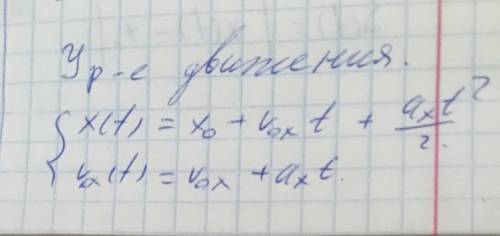 Ур-е движения.
x(t) = x₀ + v₀ₓ t + aₓt²/2.
vₓ(t) = v₀ₓ + aₓt.